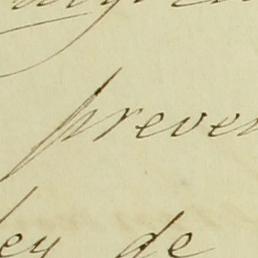 preven
ley de